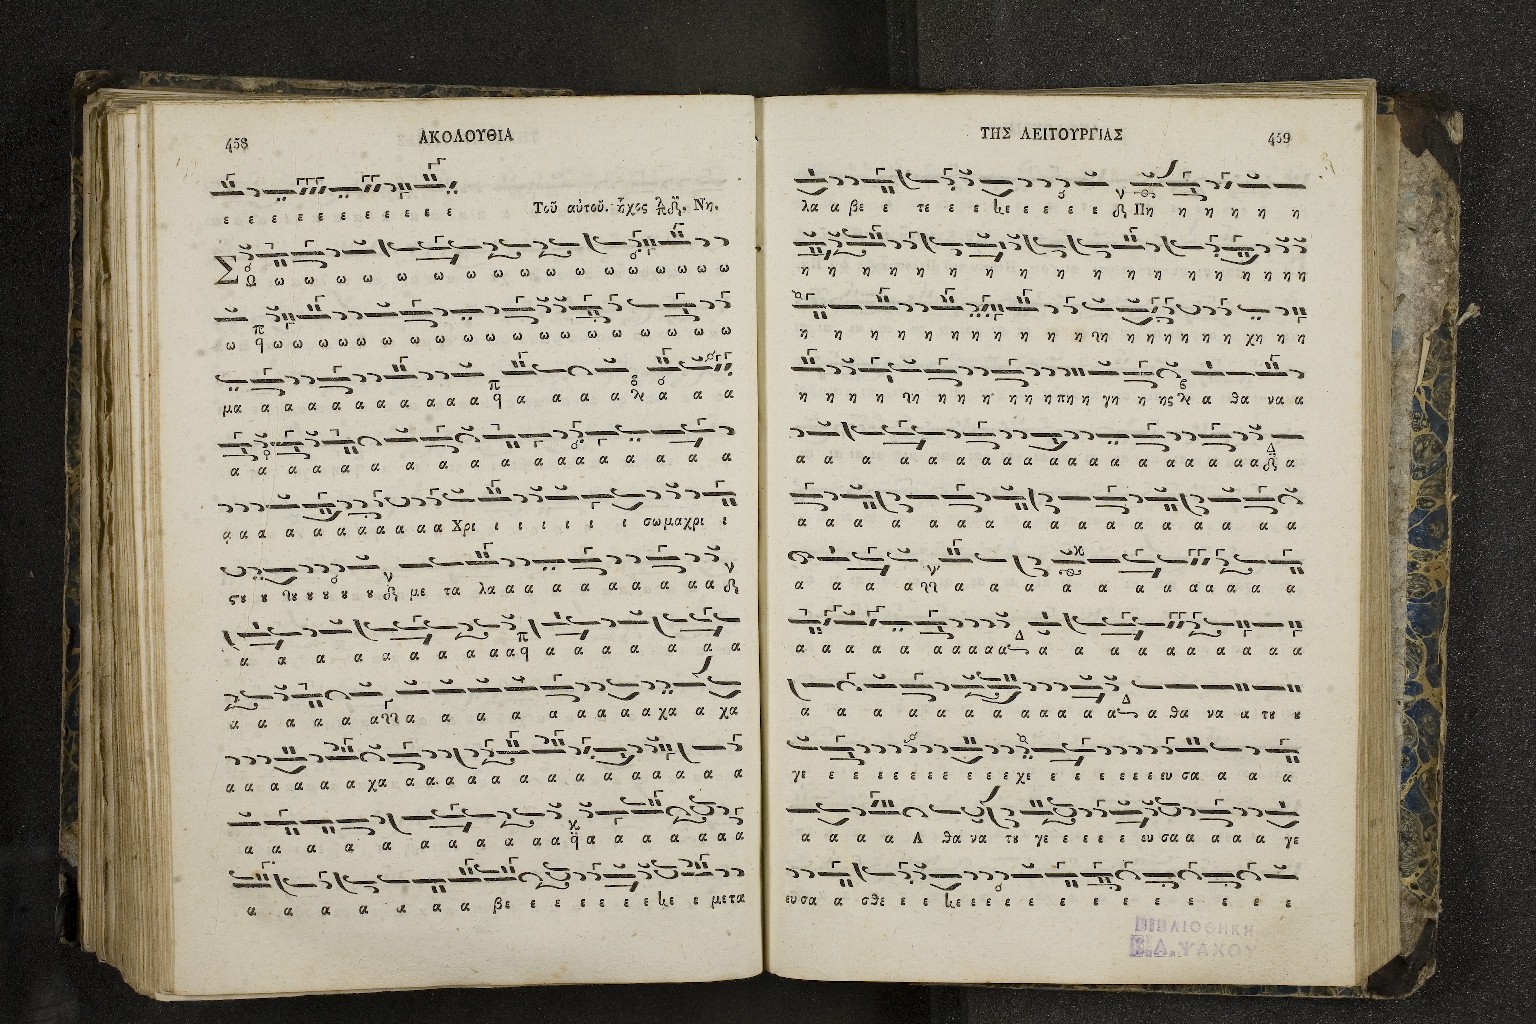 458 ΑΚΟΛΟΥΘΙΑ
ε ε ε ε ε ε ε ε ε ε ε
Τοῦ αὐτοῦ. ἦχος Νη.
Σ Ω ω ω ω ω ω ω ω ω ω ω ω ω ω ω ω
ω ω ω ω ω ω ω ω ω ω ω ω ω ω ω ω ω
μα α α α α α α α α α α α α α α α α α α
α α α α α α α α α α α α α α α α α
α α α α α α α α α α α α Χρι ι ι ι ι ι ι σωμαχρι ι
ϛȣ ȣ ȣ ȣ ȣ ȣ ȣ με τα λα α α α α α α α α α
α α α α α α α α α α α α α α α α
α α α α α α α α α α α α α α α α χα α χα
α α α α α α χα α α α α α α α α α α α α α
α α α α α α α α α α α α α α α α α
α α α α α α α βε ε ε ε ε ε ε ε ε ε μετα
ΤΗΣ ΛΕΙΤΟΥΡΓΙΑΣ 459
λα α βε ε τε ε ε ε ε ε ε ε Πη η η η η
η η η η η η η η η η η η η η η η
η η η η η η η η η η η η η η η η η χη η η
η η η η η η η η η η η πη η γη η ης α θα να α
α α α α α α α α α α α α α α α α α α α α
α α α α α α α α α α α α α α α
α α α α α α α α α α α α α α α
α α α α α α α α α α α α α α α α α α α
α α α α α α α α α α α α α θα να α τȣ ȣ
γε ε ε ε ε ε ε ε ε ε ε χε ε ε ε ε ε ε ευ σα α α α
α α α α Α θα να τȣ γε ε ε ε ε ευ σα α α α α α γε
ευ σα α σθε ε ε ε ε ε ε ε ε ε ε ε ε ε ε
ΒΙΒΛΙΟΘΗΚΗ
Κ.Α.ΨΑΧΟΥ